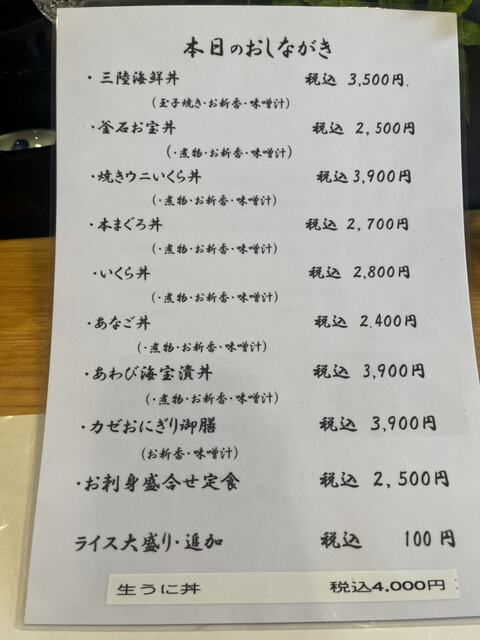 本日のおしながき
・三陸海鮮丼 税込 3,500円.
(玉子焼き・お新香・味噌汁)
・釜石お宝丼 税込 2,500円
(・煮物・お新香・味噌汁)
・焼きウニいくら丼 税込 3,900円
(・煮物・お新香・味噌汁)
・本まぐろ丼 税込 2,700円
(・煮物・お新香・味噌汁)
・いくら丼 税込 2,800円
(・煮物・お新香・味噌汁)
・あなご丼 税込 2.400円
(・煮物・お新香・味噌汁)
・あわび海宝漬丼 税込 3,900円
(・煮物・お新香・味噌汁)
・カゼおにぎり御膳 税込 3,900円
(お新香・味噌汁)
・お刺身盛合せ定食 税込 2,500円
ライス大盛り・追加 税込 100円
生うに丼 税込4,000円